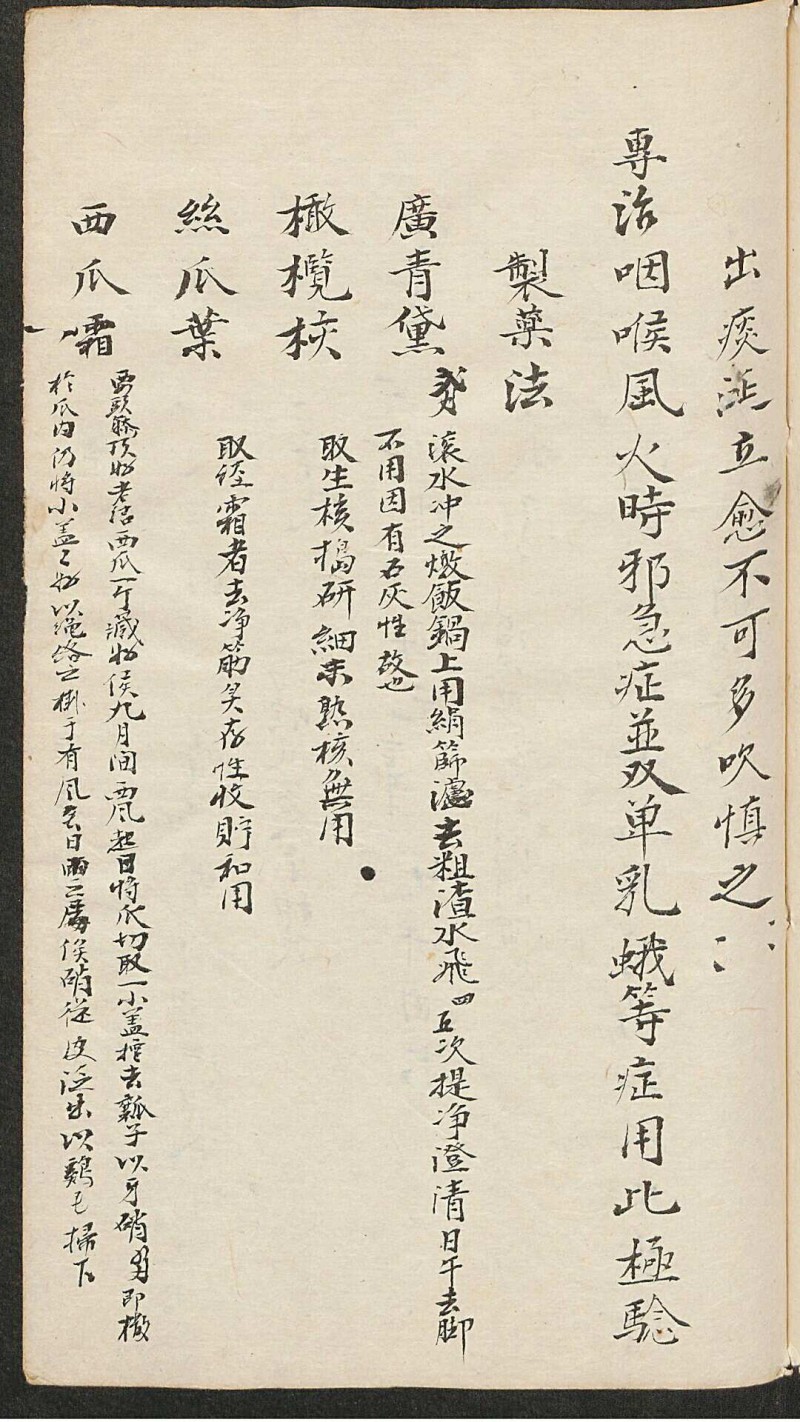 出痰涎立愈不可多吹慎之
專治咽喉風火時邪急症並双单乳蛾等症用此極驗
製藥法
廣青黛 滚水冲之燉飯鍋上用絹篩濾去粗渣水飛四五次提净澄清日午去脚
不用因有石灰性故也
橄欖核 取生核搗研細末熟核無用
絲瓜葉 取经霜者去净筋炙存性收貯和用
西瓜霜 藤頂好老结西瓜一个藏好候九月间西風起日將瓜切取一小盖挖去瓤子以牙硝
於瓜内仍将小盖盖好以绳络之掛于有風無日雨之處候硝從皮泛出以鷄毛掃下